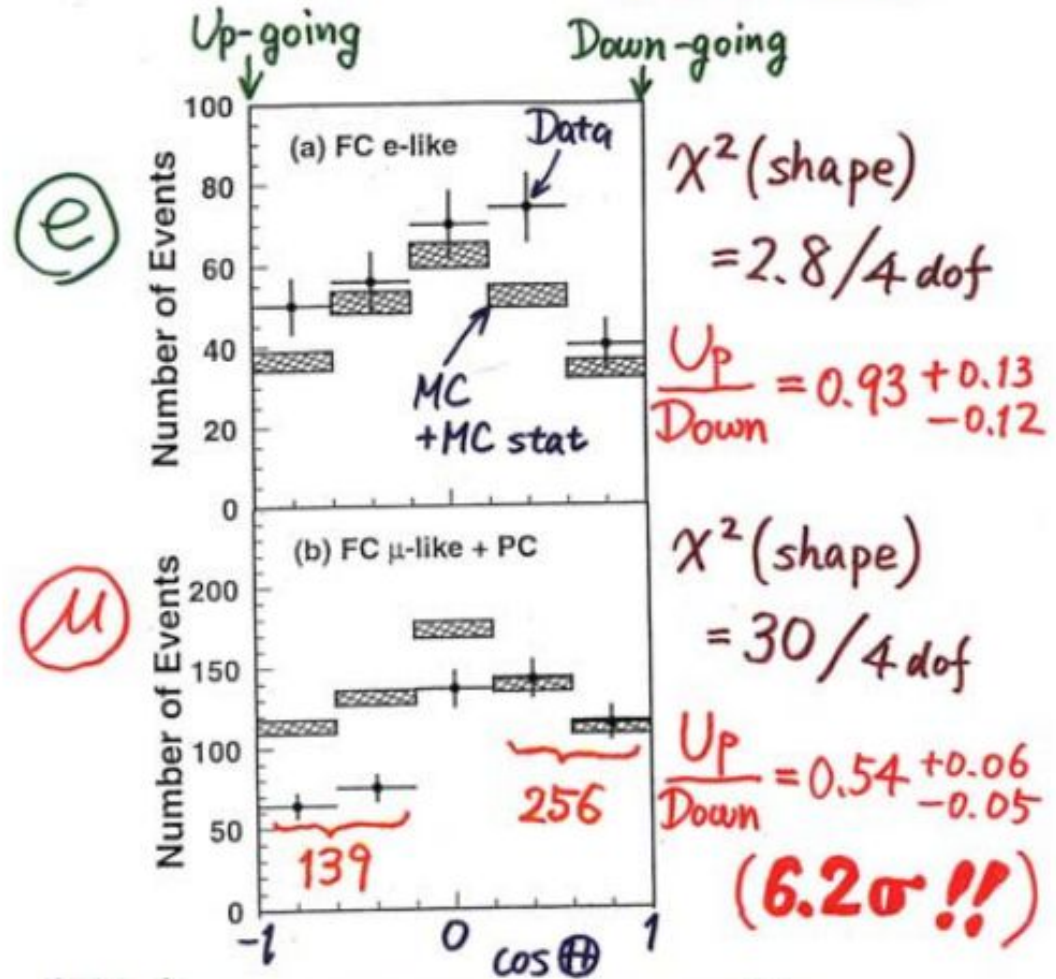 Up-going
Down-going
100
80
60
40
20
0
Number of Events
(a) FC e-like
Data
MC
+MC stat
e
χ² (shape)
= 2.8/4 dof
Up/Down = 0.93 +0.13 -0.12
200
150
100
50
0
Number of Events
(b) FC μ-like + PC
139
256
μ
χ² (shape)
= 30/4 dof
Up/Down = 0.54 +0.06 -0.05
(6.2σ!!)
-1
0
1
cos Θ